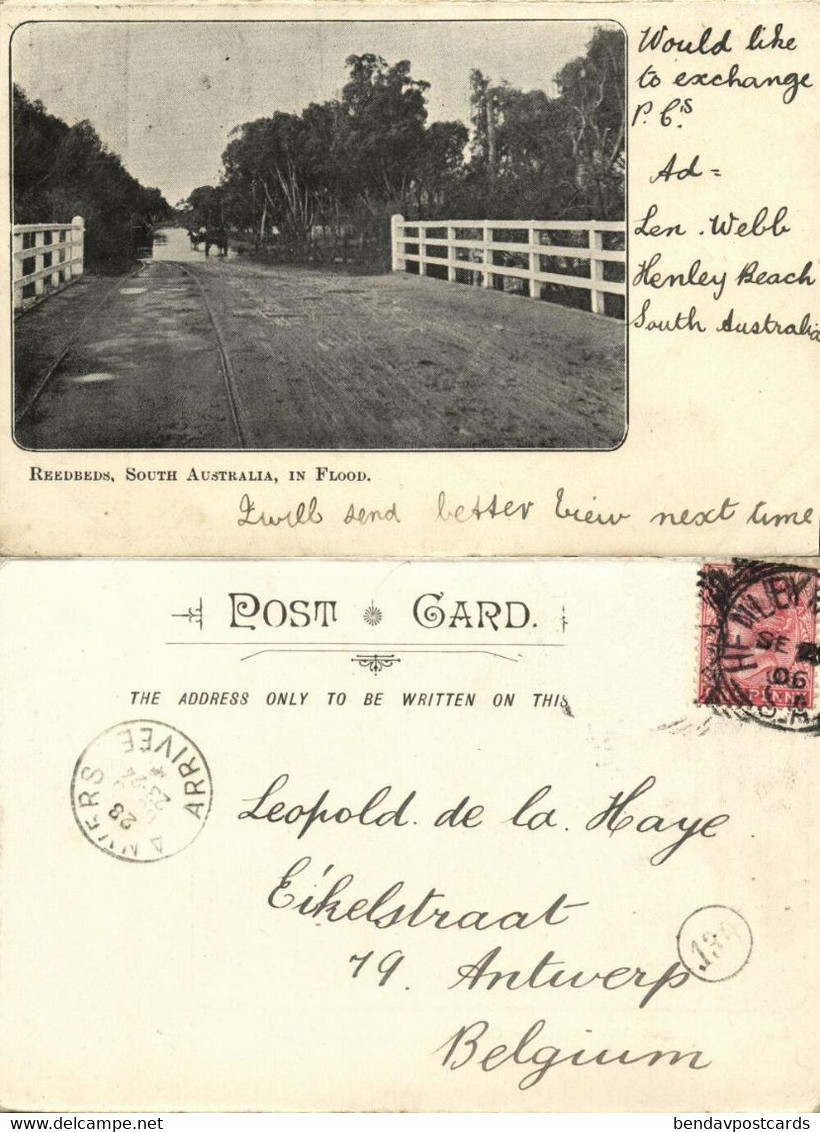 Would like
to exchange
P. Cs.
Ad =
Len . Webb
Henley Beach
South Australia
REEDBEDS, SOUTH AUSTRALIA, IN FLOOD.
I will send better view next time
POST CARD.
THE ADDRESS ONLY TO BE WRITTEN ON THIS
HENLEY B
SE
06
S.A
PENNY
ANVERS
ARRIVEE
23
23-24
Leopold. de la. Haye
Eikelstraat
79. Antwerp
Belgium
134
bendavpostcards